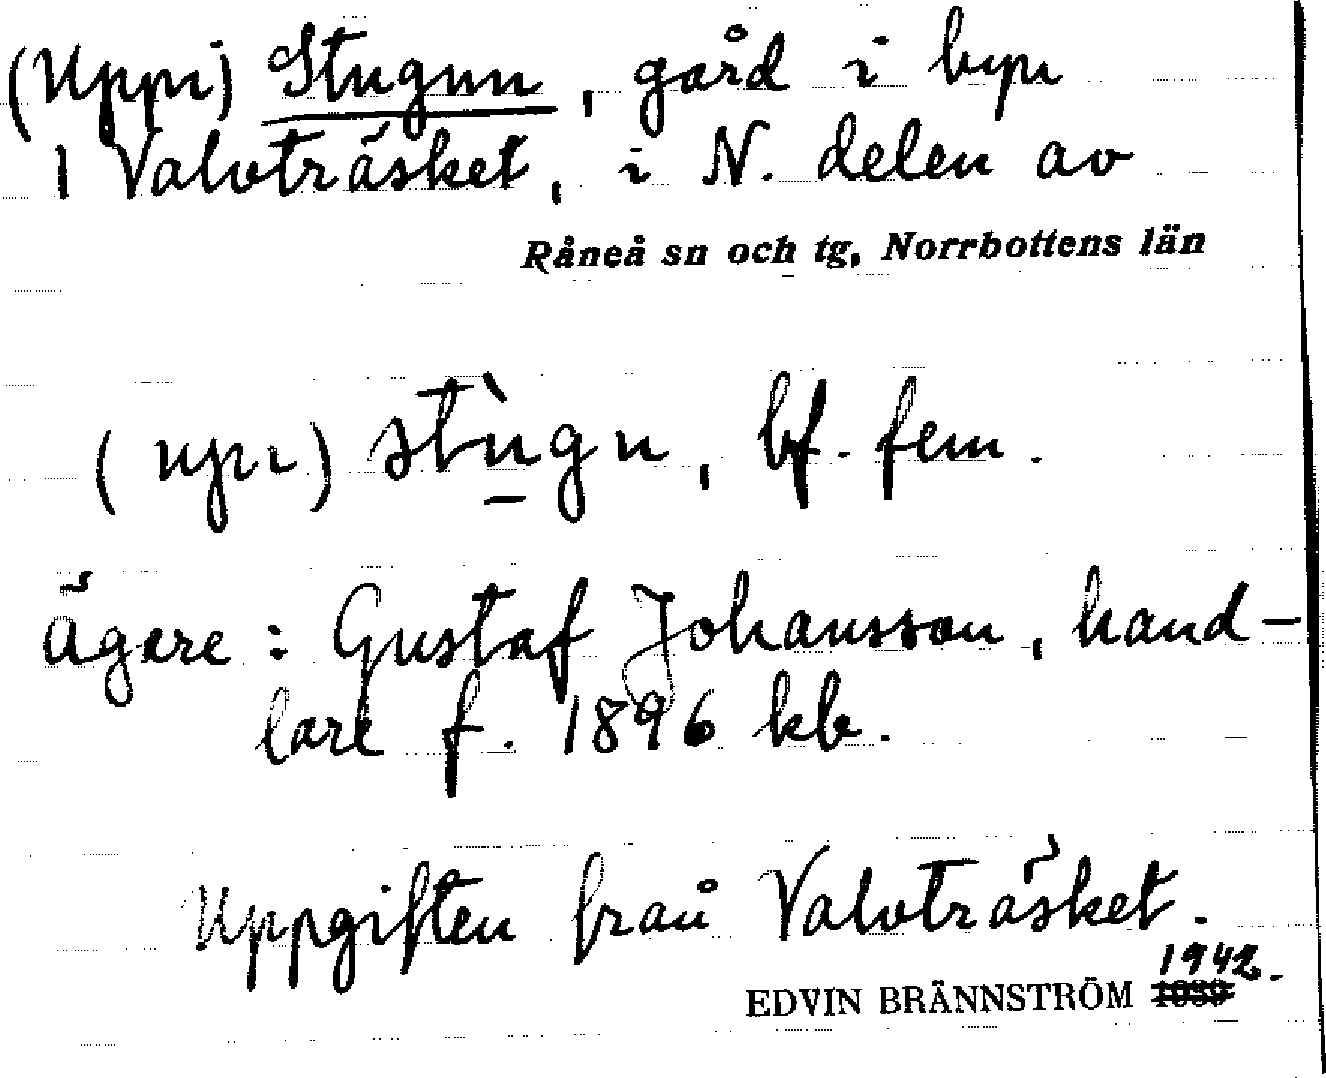 (Uppi) Stugun, gård i byn
1 Valvträsket, i N. delen av
Råneå sn och tg, Norrbottens län
(upi) stùgu, bf. fem.
Ägare: Gustaf Johansson, hand-
lare f. 1896 kb.
Uppgiften från Valvträsket.
1942.
EDVIN BRÄNNSTRÖM 1939